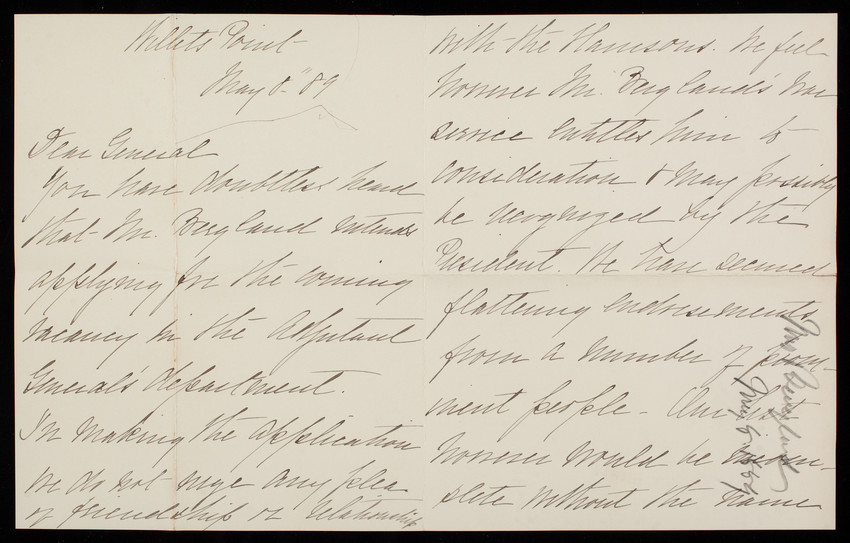 Willets Point
May 8" 89
Dear General
You have doubtless heard
that Mr. Bergland intends
applying for the coming
vacancy in the Adjutant
General's department.
In making the application
we do not urge any plea
of friendship or relationship
with the Harrisons. We feel
however Mr. Bergland's war
service entitles him to
consideration & may possibly
be recognized by the
President. We have secured
flattering endorsements
from a number of promi-
nent people - Our list
however would be incom-
plete without the name
Mrs Bergland
May 8, 1889